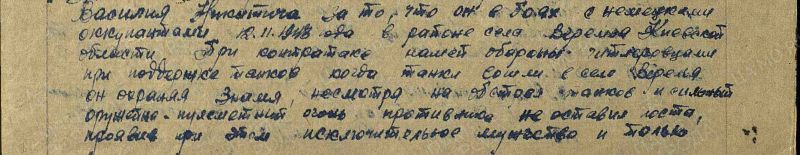 Василия Никитича за то, что он в боях с немецкими
оккупантами 12.11.1943 года в районе села Веремья Киевской
области. При контратаке нашей обороны гитлеровцами
при поддержке танков когда танки вошли в село Веремья
он охраняя Знамя, несмотря на обстрел танков и сильный
оружейно-пулеметный огонь противника не оставил поста,
проявив при этом исключительное мужество и только